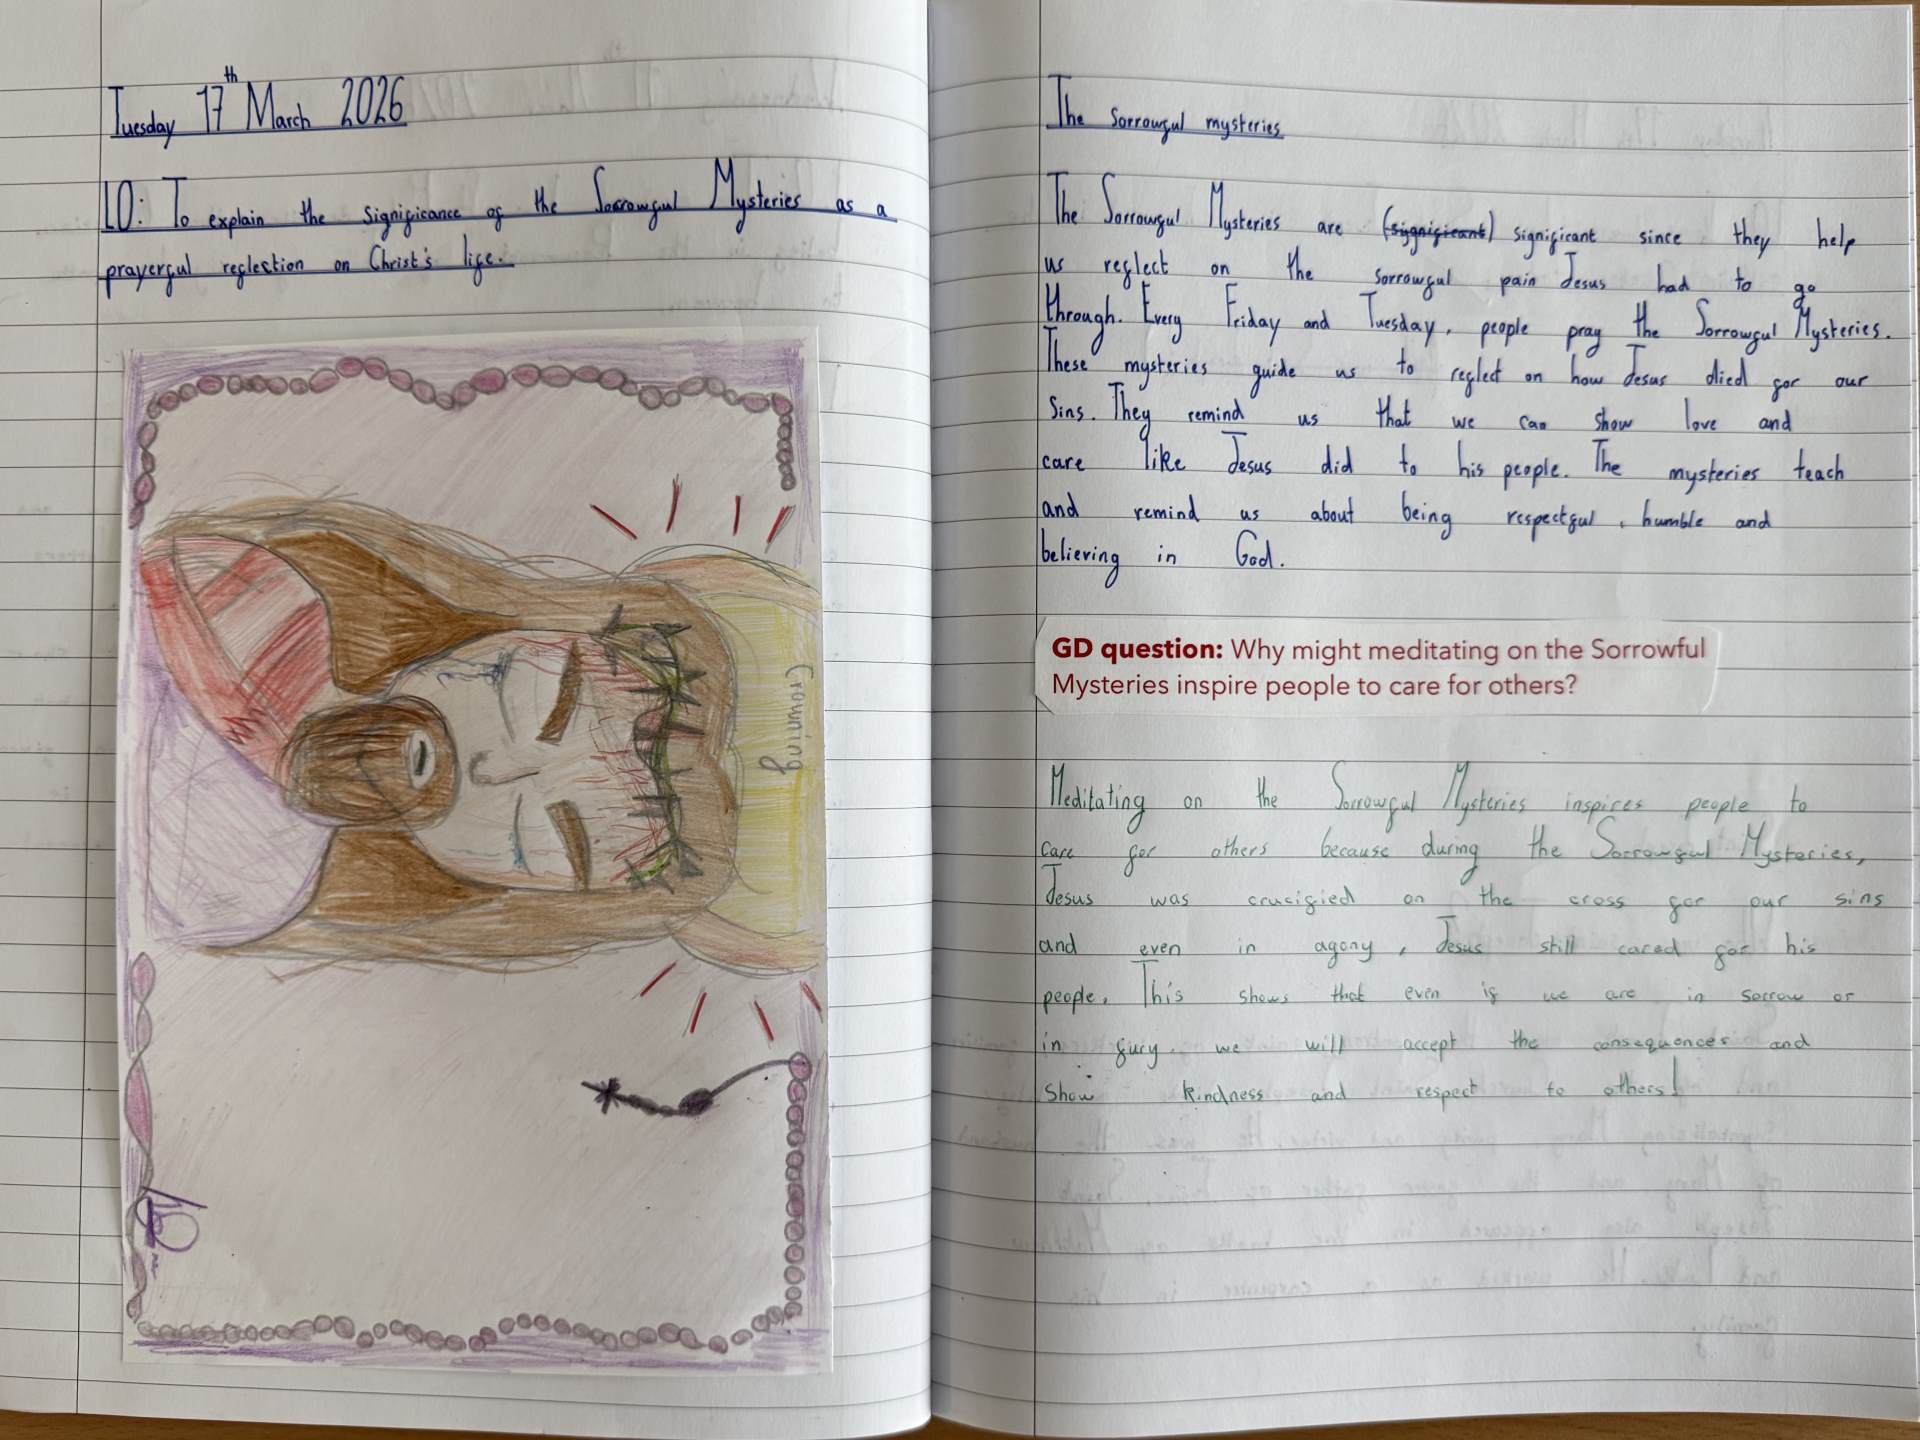 Tuesday 17th March 2026
LO: To explain the significance of the Sorrowful Mysteries as a
prayerful reflection on Christ's life.
Crowning
The Sorrowful mysteries
The Sorrowful Mysteries are (significant) significant since they help
us reflect on the sorrowful pain Jesus had to go
through. Every Friday and Tuesday, people pray the Sorrowful Mysteries.
These mysteries guide us to reflect on how Jesus died for our
sins. They remind us that we can show love and
care like Jesus did to his people. The mysteries teach
and remind us about being respectful, humble and
believing in God.
GD question: Why might meditating on the Sorrowful
Mysteries inspire people to care for others?
Meditating on the Sorrowful Mysteries inspires people to
care for others because during the Sorrowful Mysteries,
Jesus was crucified on the cross for our sins
and even in agony, Jesus still cared for his
people. This shows that even if we are in sorrow or
in fury, we will accept the consequences and
show kindness and respect to others!